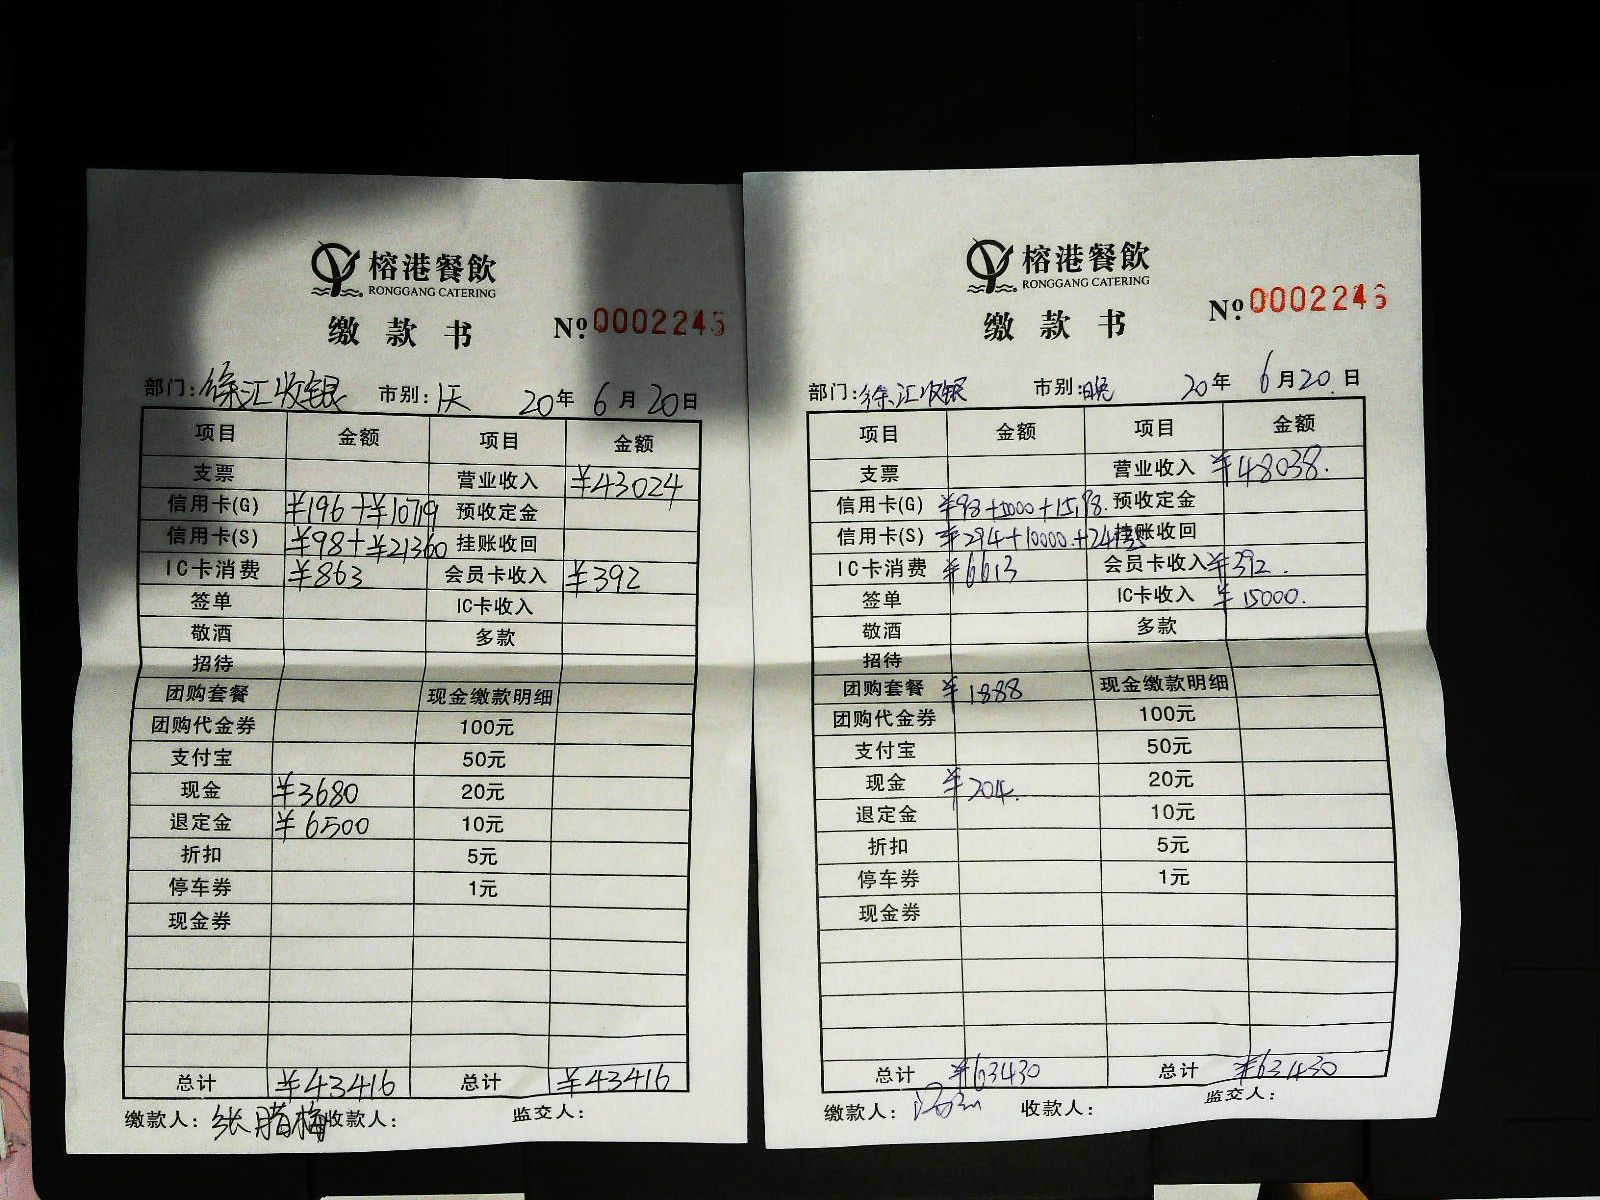 榕港餐飲
RONGGANG CATERING
缴款书 Nº 0002245
部门: 徐汇收银 市别: 天 20年 6月20日
项目 金额 项目 金额
支票 营业收入 ¥43024
信用卡(G) ¥196+¥10719 预收定金
信用卡(S) ¥98+¥21360 挂账收回
IC卡消费 ¥863 会员卡收入 ¥392
签单 IC卡收入
敬酒 多款
招待
团购套餐 现金缴款明细
团购代金券 100元
支付宝 50元
现金 ¥3680 20元
退定金 ¥6500 10元
折扣 5元
停车券 1元
现金券
总计 ¥43416 总计 ¥43416
缴款人: 张腊梅 收款人: 监交人:
榕港餐飲
RONGGANG CATERING
缴款书 Nº 0002246
部门: 徐汇收银 市别: 晚 20年 6月20.日
项目 金额 项目 金额
支票 营业收入 ¥48038.
信用卡(G) ¥98+ 预收定金
信用卡(S) ¥294+10000.+ 挂账收回
IC卡消费 ¥6613 会员卡收入 ¥392.
签单 IC卡收入 ¥15000.
敬酒 多款
招待
团购套餐 ¥1888 现金缴款明细
团购代金券 100元
支付宝 50元
现金 ¥204. 20元
退定金 10元
折扣 5元
停车券 1元
现金券
总计 ¥63430 总计 ¥63430
缴款人: 收款人: 监交人: